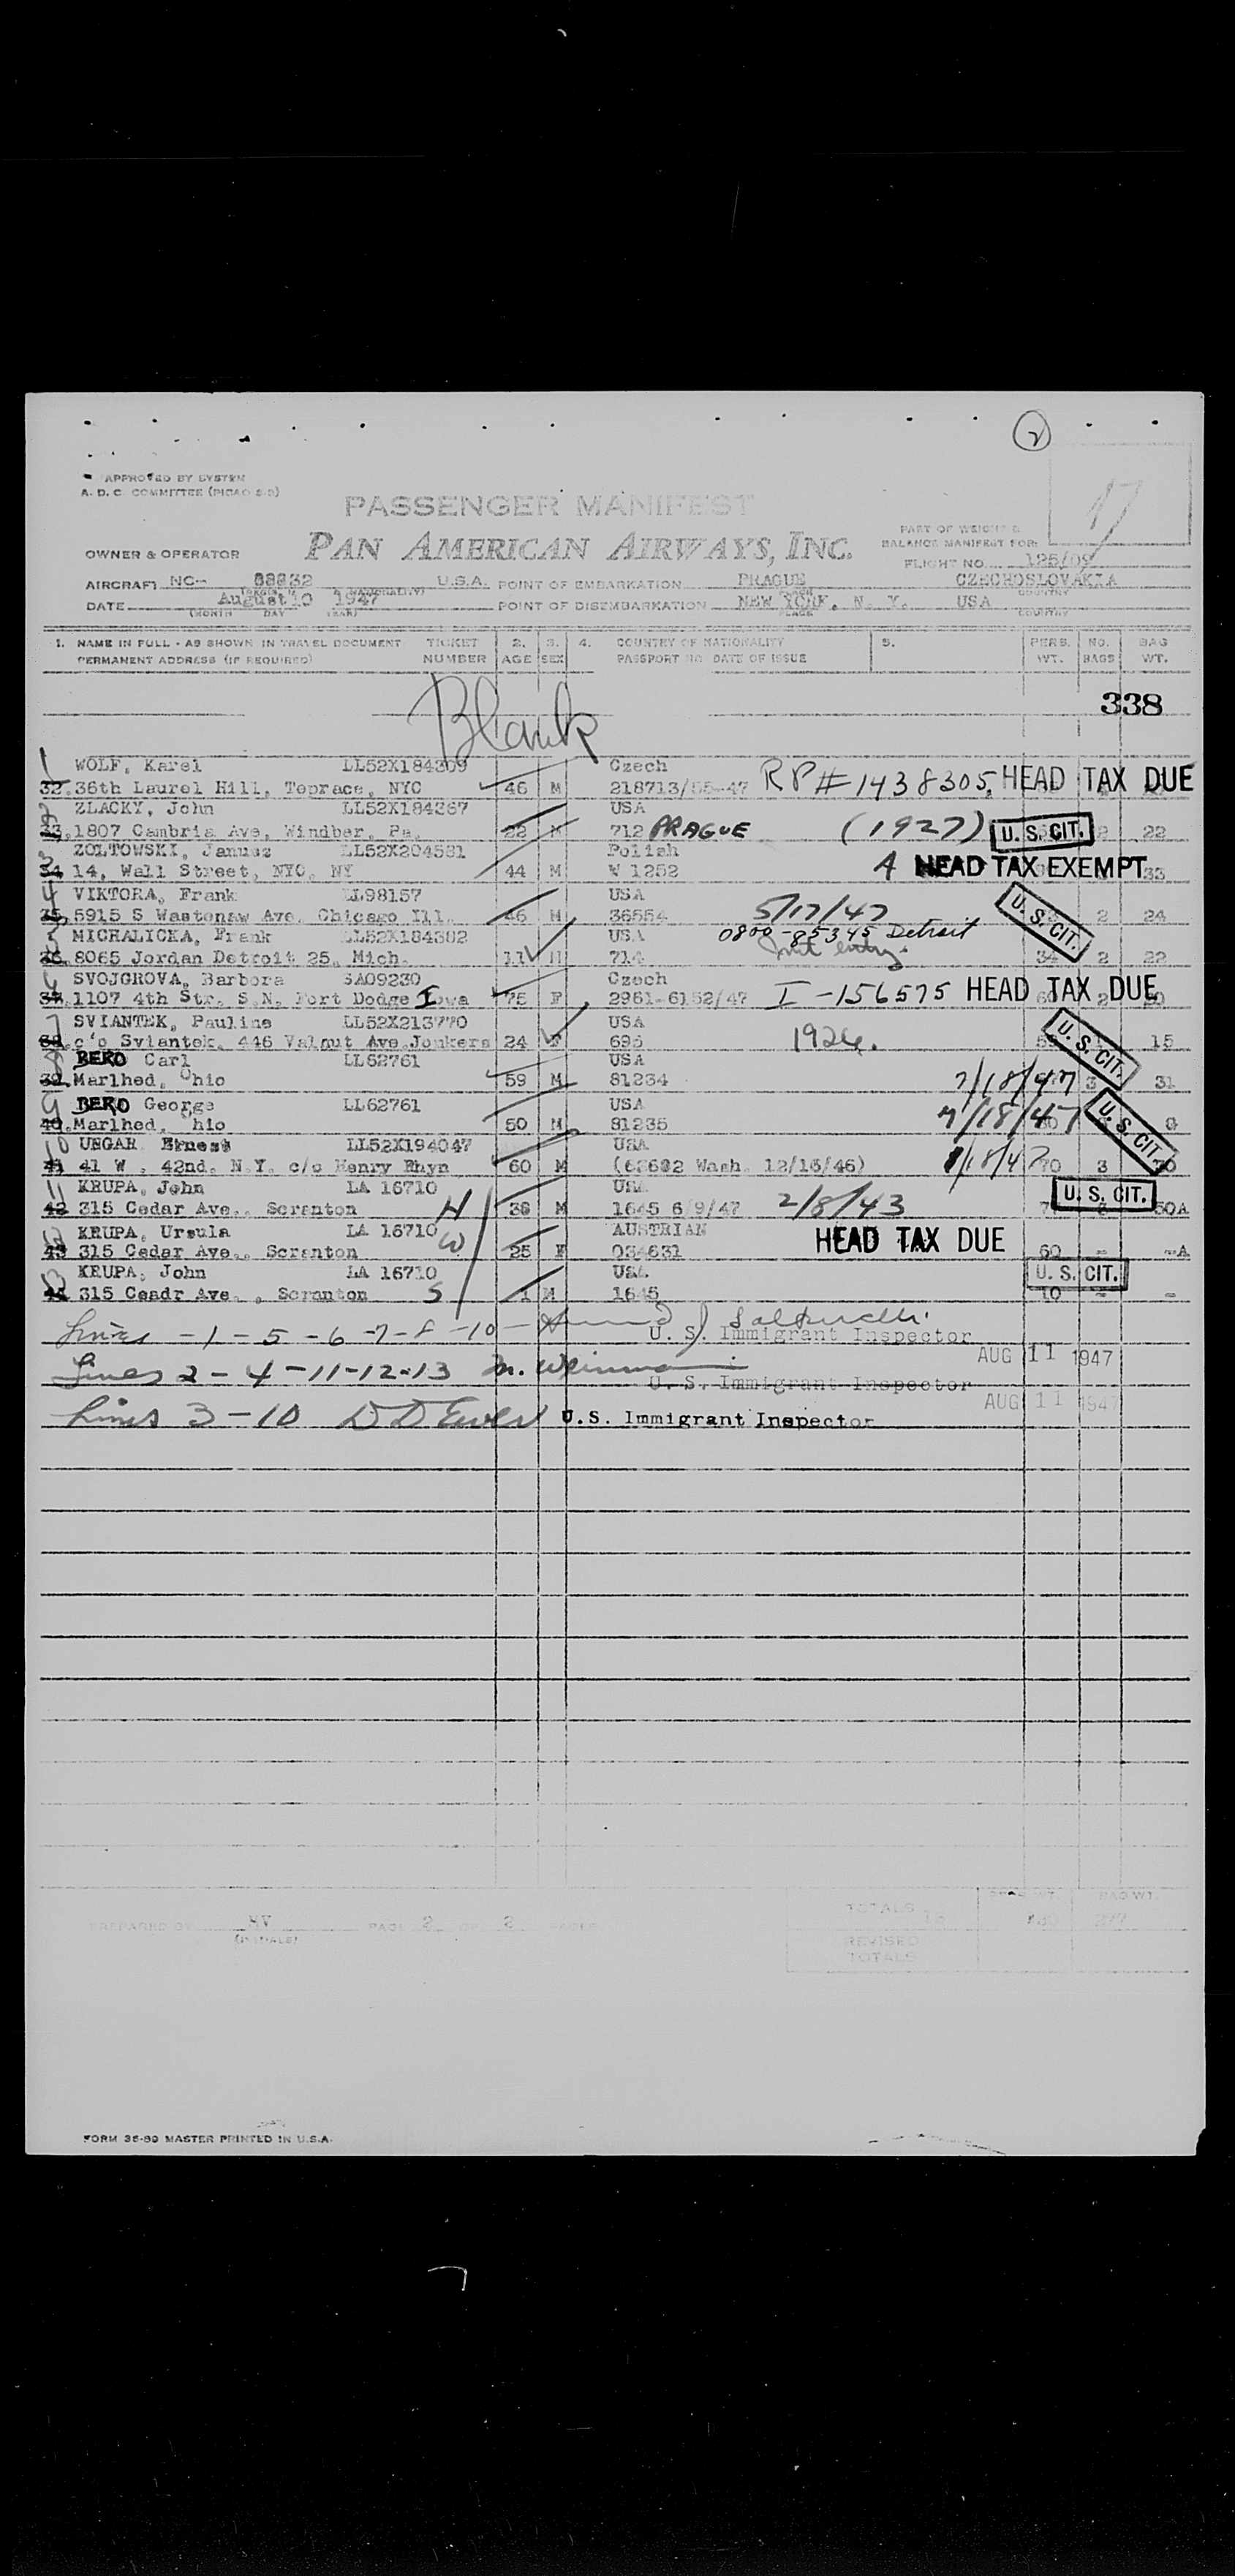 2
APPROVED BY SYSTEM
A. D. C. COMMITTEE (PICAO S-3)
17
PASSENGER MANIFEST
PART OF WEIGHT &
BALANCE MANIFEST FOR:
OWNER & OPERATOR PAN AMERICAN AIRWAYS, INC.
FLIGHT NO. 125/09
AIRCRAFT NC- 88832 U.S.A. POINT OF EMBARKATION PRAGUE CZECHOSLOVAKIA
DATE August 10 1947 POINT OF DISEMBARKATION NEW YORK, N. Y. USA
(MONTH DAY YEAR) PLACE COUNTRY
1. NAME IN FULL - AS SHOWN IN TRAVEL DOCUMENT TICKET 2. 3. 4. COUNTRY OF NATIONALITY 5. PERS. NO. BAG
PERMANENT ADDRESS (IF REQUIRED) NUMBER AGE SEX PASSPORT NO. DATE OF ISSUE WT. BAGS WT.
338
Blank
1 WOLF, Karel LL52X184309 Czech
32. 36th Laurel Hill, Teprace, NYC 46 M 218713/55-47 RP# 1438305 HEAD TAX DUE
2 ZLACKY, John LL52X184367 USA
33. 1807 Cambria Ave, Windber, Pa. 22 M 712 PRAGUE (1927) U.S. CIT. 2 22
3 ZOLTOWSKI, Janusz LL52X204531 Polish
34 14, Wall Street, NYC, NY 44 M W 1252 A HEAD TAX EXEMPT 33
4 VIKTORA, Frank LL98157 USA
35. 5915 S Wastenaw Ave. Chicago Ill. 46 M 36554 5/17/47 U.S. CIT. 2 24
5 MICHALICKA, Frank LL52X184302 USA 0800-85345 Detroit
36. 8065 Jordan Detroit 25, Mich. 11 M 714 34 2 22
6 SVOJGROVA, Barbora SA09230 Czech
37. 1107 4th Str. S.N, Fort Dodge Iowa 75 F 2961-6152/47 I-156575 HEAD TAX DUE
7 SVIANTEK, Pauline LL52X213770 USA
38. c/o Sviantek, 446 Walnut Ave Jonkers 24 F 695 1926. U.S. CIT. 15
8 BERO Carl LL62761 USA
39. Marlhed, Ohio 59 M 81234 7/18/47 3 31
9 BERO George LL62761 USA
40. Marlhed, Ohio 50 M 81235 7/18/47 U.S. CIT.
10 UNGAR Ernest LL52X194047 USA
41 41 W. 42nd. N.Y. c/o Henry Rhyn 60 M (62602 Wash. 12/13/46) 8/18/47 70 3
11 KRUPA, John LA 16710 USA
42 315 Cedar Ave., Scranton H 38 M 1645 6/9/47 2/8/43 U.S. CIT. 50A
12 KRUPA, Ursula LA 16710 AUSTRIAN
43 315 Cedar Ave., Scranton W 25 F 034631 HEAD TAX DUE 60 - -A
13 KRUPA, John LA 16710 USA U.S. CIT.
44 315 Ceadr Ave., Scranton S 1 M 1645 10 - -
Lines -1-5-6-7-8-10-
U. S. Immigrant Inspector
AUG 11 1947
Lines 2-4-11-12-13 M. Weinman
U. S. Immigrant Inspector
AUG 11 1947
Lines 3-10 U.S. Immigrant Inspector
PREPARED BY HV PAGE 2 OF 2 PAGES
(INITIALS)
PERS. WT. BAG WT.
TOTALS
REVISED
TOTALS
FORM 36-89 MASTER PRINTED IN U.S.A.